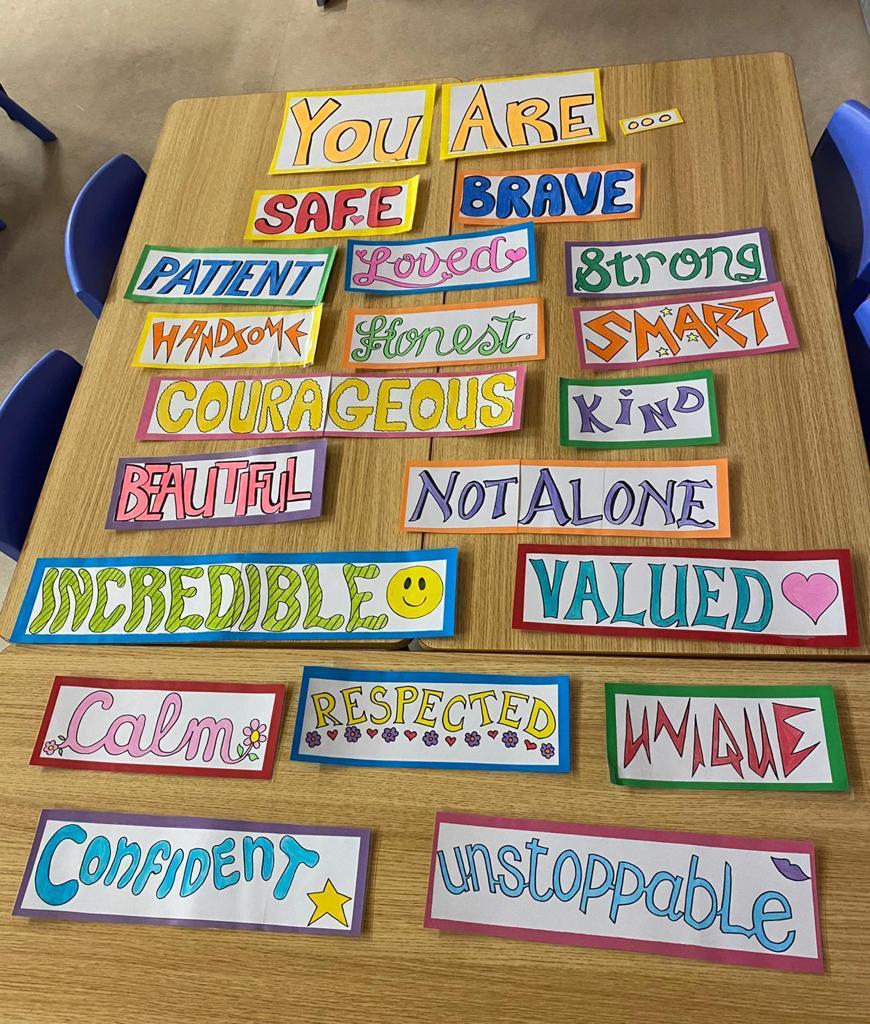 YOU ARE ...
SAFE BRAVE
PATIENT Loved Strong
HANDSOME Honest SMART
COURAGEOUS KiND
BEAUTIFUL NOT ALONE
INCREDIBLE VALUED
Calm RESPECTED UNIQUE
CONFIDENT unstoppable